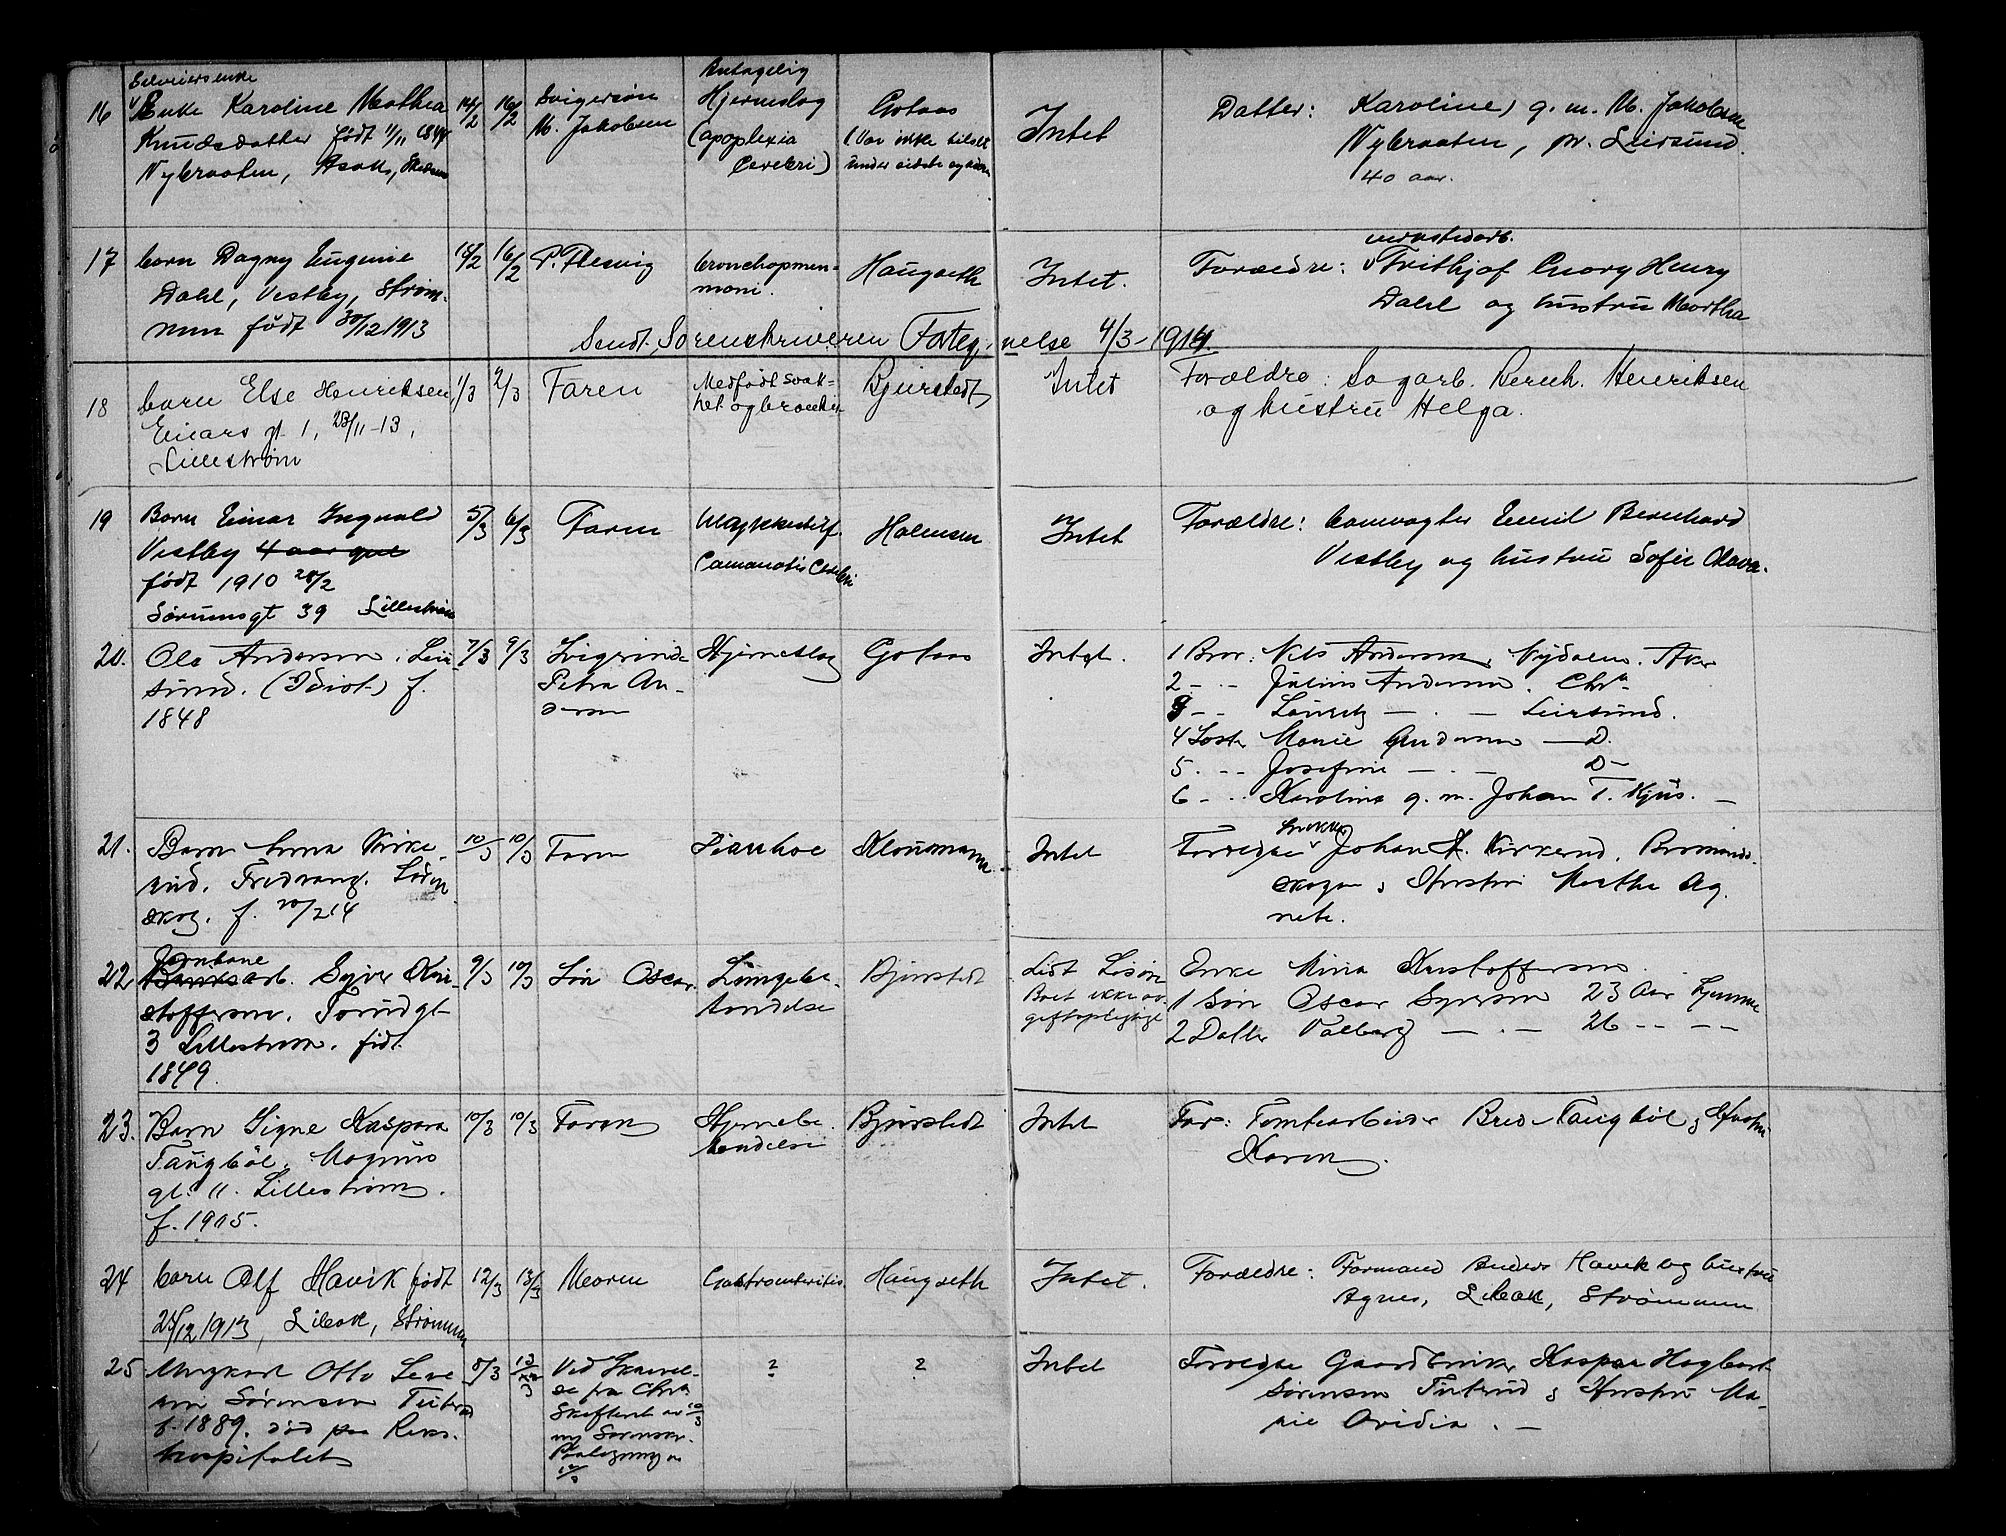 16 Selveiersenke
Enke Karoline Mathea
Knudsdatter født 1/11 1844
Nybraaten, Asak, Skedsmo
14/2 16/2
Svigersøn
M. Jakobsen
Antagelig
Hjerneslag
(apoplexia
Cerebri)
Gotaas
(Var ikke tilset
under sidste sygdom
Intet
Datter: Karoline, g. m. M. Jakobsen
Nybraaten, pr. Leirsund.
40 aar.
17 barn Dagny Eugenie
Dahl, Vestby, Strøm-
men født 30/12 1913
15/2 16/2
P. Flesvig
bronchopneu-
moni.
Haugseth
Intet.
Forældre: verkstedarb.
Frithjof Georg Henry
Dahl og hustru Martha
Sendt Sorenskriveren Forteg-
nelse 4/3-1914.
18 barn Else Henriksen
Einars gt. 1, 23/11-13,
Lillestrøm
1/3 2/3
Faren
Medfødt svak-
het og bronkit
Bjørstedt
Intet
Forældre: Sagarb. Bernh. Henriksen
og hustru Helga.
19 Barn Einar Ingvald
Vestby 4 aar gml
født 1910 28/2
Sørumsgt 39 Lillestrøm
5/3 6/3
Faren
Halvorsen
Intet
Forældre: banevagter Emil Bernhard
Vestby og hustru Sofie Olava.
20. Ole Andersen, Leir-
sund. (Idiot) f.
1848
7/3 9/3
Svigerinde
Petra An-
dersen
Hjerneslag
Gotaas
Intet.
1 Bror: Nils Andersen, Nydalen. Aker
2 - .. Julius Andersen. Chra
3 - - Lauritz — . — Leirsund.
4 Søst. Marie Andersen — D.
5. - - Josefine — . — D -
6 - .. Karoline g. m. Johan T. Kjus. —
21. Barn Anna Kirke-
rud. Fredvang. Løren
skog. f. 20/2 14
10/3 10/3
Faren
Klousmann.
Intet
snekker
Forældre Johan A. Kirkerud,
skogen & Hustru Marthe Ag
nete.
22. Jernbane
Banearb. Syver Kri-
stoffersen. Torudgt
3 Lillestrøm. født
1849.
9/3 10/3
Søn Oscar.
Lungebe-
tændelse
Bjørstedt
Lidt Løsøre
Boet ikke av-
giftspligtigt
Enke Mina Kristoffersen.
1 Søn Oscar Syversen 23 Aar hjemme
2 Datter Valborg — . — 26 - - - -
23. Barn Signe Kaspara
Taugbøl, Magnus
gt. 11. Lillestrøm.
f. 1905.
10/3 10/3
Faren
Hjernebe-
tændelse
Bjørstedt
Intet
Far: Tomtearbeider Bred Taugbøl & Hustru
Karen.
24 barn Alf Havik født
25/12 1913, Libak, Strømmen
12/3 13/3
Moren
Gastroenteritis
Haugseth
Intet.
Forældre: Formand Anders Havik og hustru
Agnes, Libak, Strømmen
25 Ungkarl Otto Seve
rin Sørensen Tuterud
f. 1889. død paa Riks-
hospitalet
8/3 12/3
Ved Skrivel-
se fra Chra
Skifteret av 10/3
?
?
Intet
Forældre Gaardbruker Kasper Hagbart
Sørensen Tuterud & Hustru Ma-
rie Ovidia. —